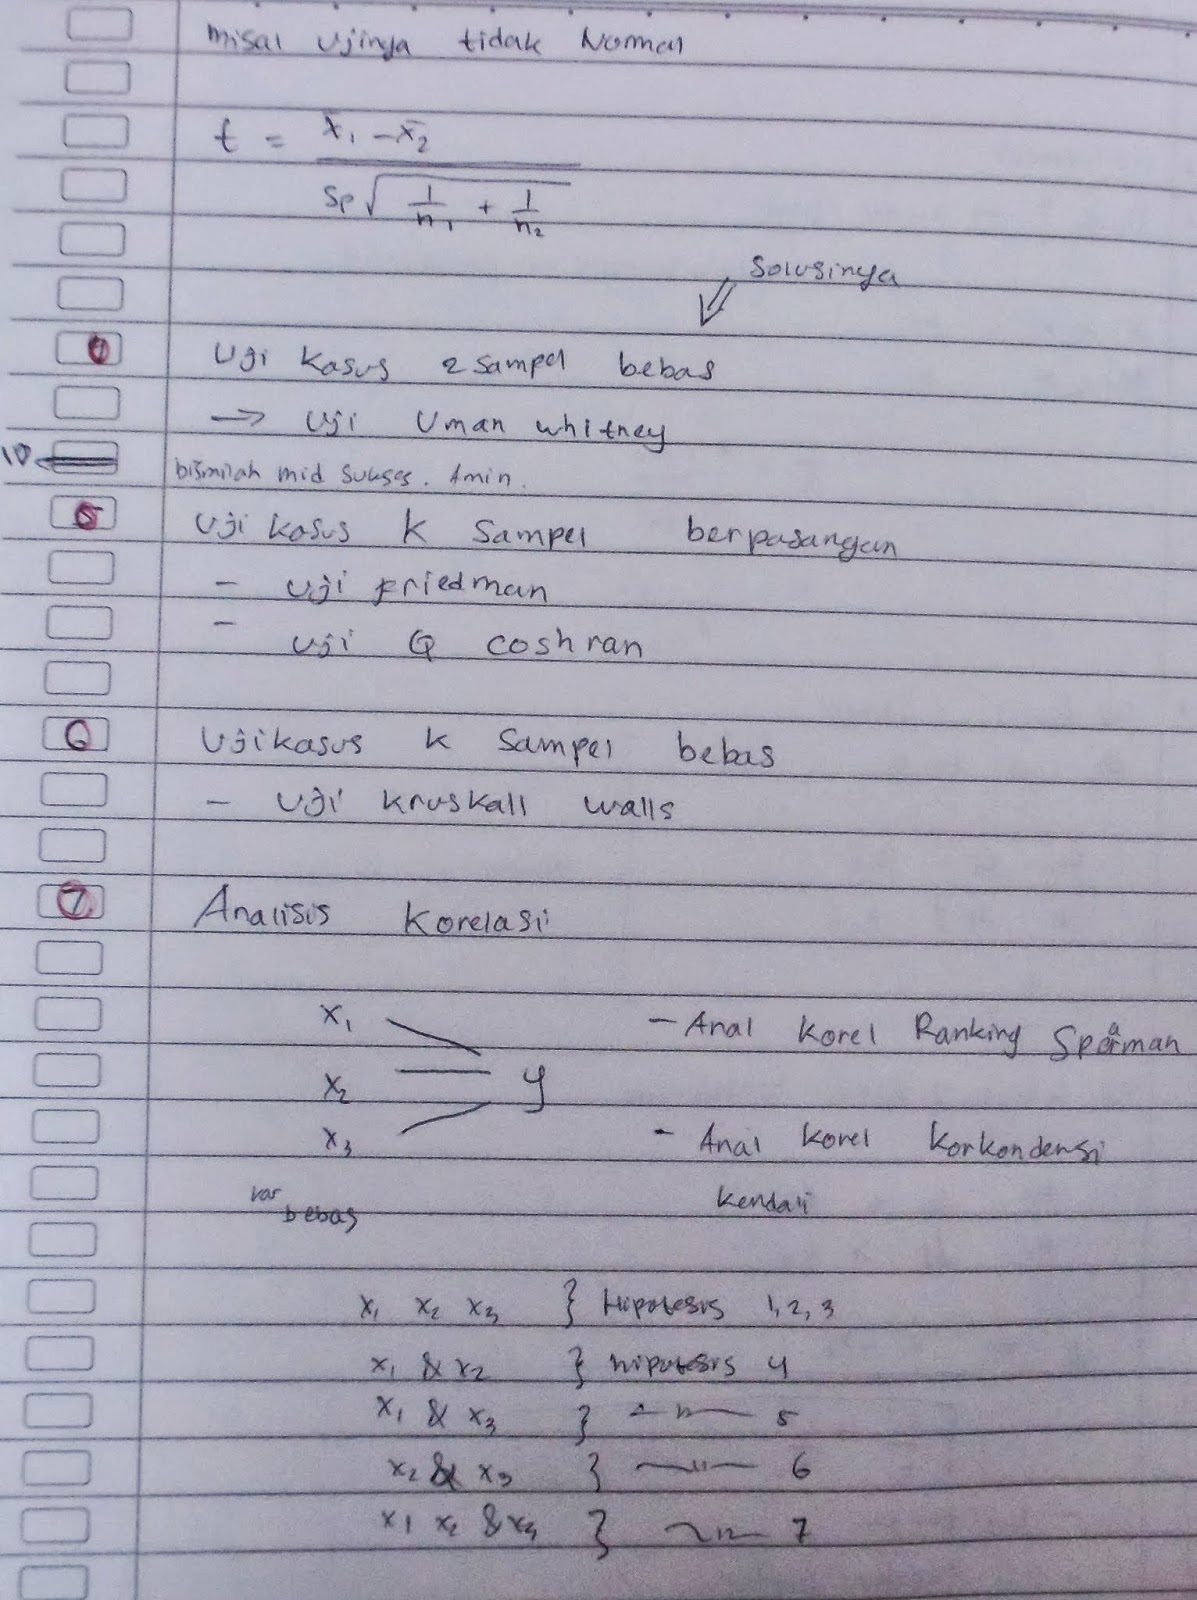 misal ujinya tidak Normal
t = x̄₁ - x̄₂
Sp √ 1/n₁ + 1/n₂
Solusinya
Uji kasus 2 sampel bebas
→ Uji U man whitney
10
bismilah mid sukses. Amin.
5 Uji kasus k Sampel berpasangan
- Uji friedman
- Uji Q coshran
6 Uji kasus k Sampel bebas
- Uji kruskall walls
7 Analisis Korelasi
x₁ - Anal Korel Ranking Sparman
x₂ y
x₃ - Anal Korel Korkondensi
var bebas Kendali
x₁ x₂ x₃ } Hipotesis 1, 2, 3
x₁ & x₂ } hipotesis 4
x₁ & x₃ } —〃— 5
x₂ & x₃ } —〃— 6
x₁ x₂ & x₃ } —〃— 7